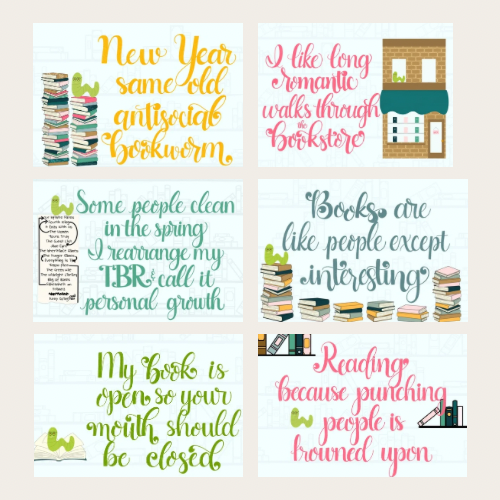 New Year
same old
antisocial
bookworm
I like long
romantic
walks through
the
Bookstore
Some people clean
in the spring
I rearrange my
TBR & call it
personal growth
Books are
like people except
interesting
My Book is
open so your
mouth should
be closed
Reading
because punching
people is
frowned upon